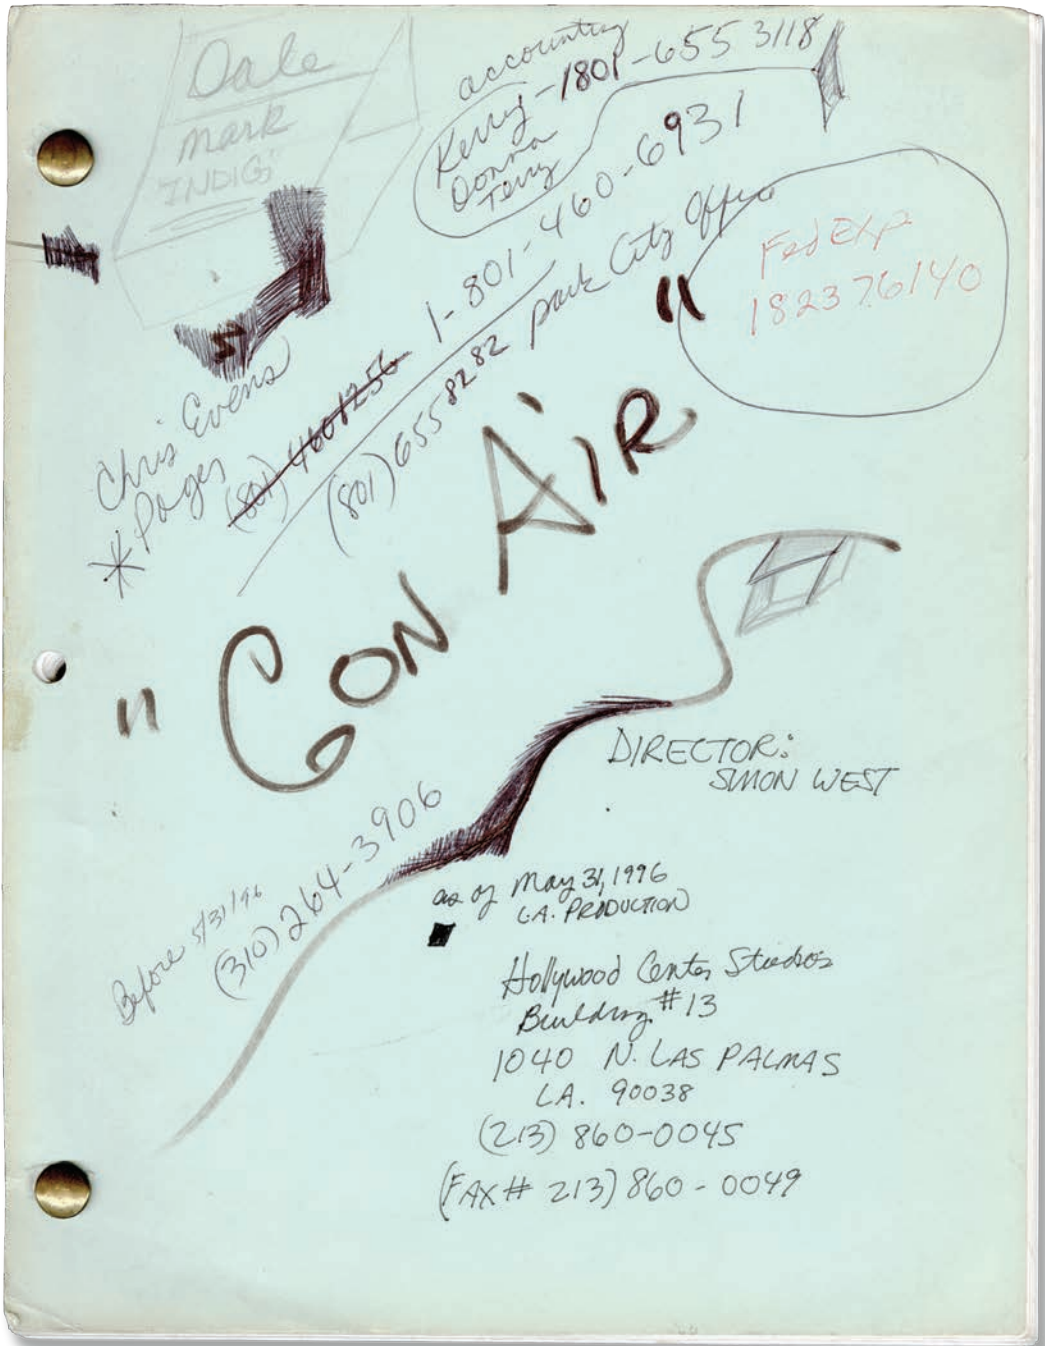 Dale
Mark
INDIG
accounting
Kerry-1801-655 3118
Donna
Terry
1-801-460-6931
Fed Exp
182376140
Chris Evens
*Pages
(801) 4601256
(801) 655 8282 Park City Office
"CON AIR"
DIRECTOR:
SIMON WEST
Before 5/31/96
(310) 264-3906
as of May 31, 1996
L.A. PRODUCTION
Hollywood Center Studios
Building #13
1040 N. LAS PALMAS
LA. 90038
(213) 860-0045
(FAX# 213) 860-0049